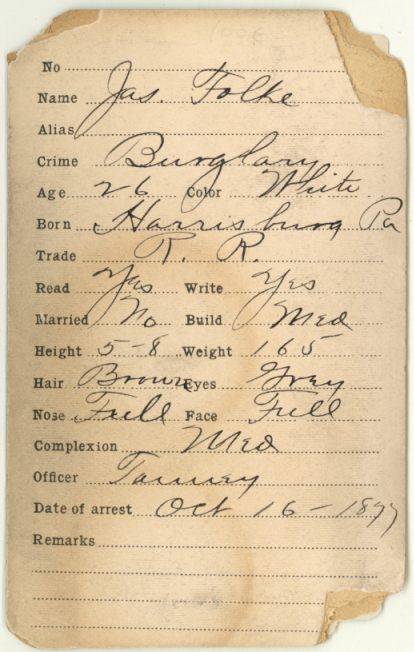 No
Name Jas. Folke
Alias
Crime Burglary
Age 26 Color White
Born Harrisburg Pa
Trade R. R.
Read Yes Write Yes
Married No Build Med
Height 5-8 Weight 165
Hair Brown Eyes Grey
Nose Full Face Full
Complexion Med
Officer
Date of arrest Oct 16-1897
Remarks